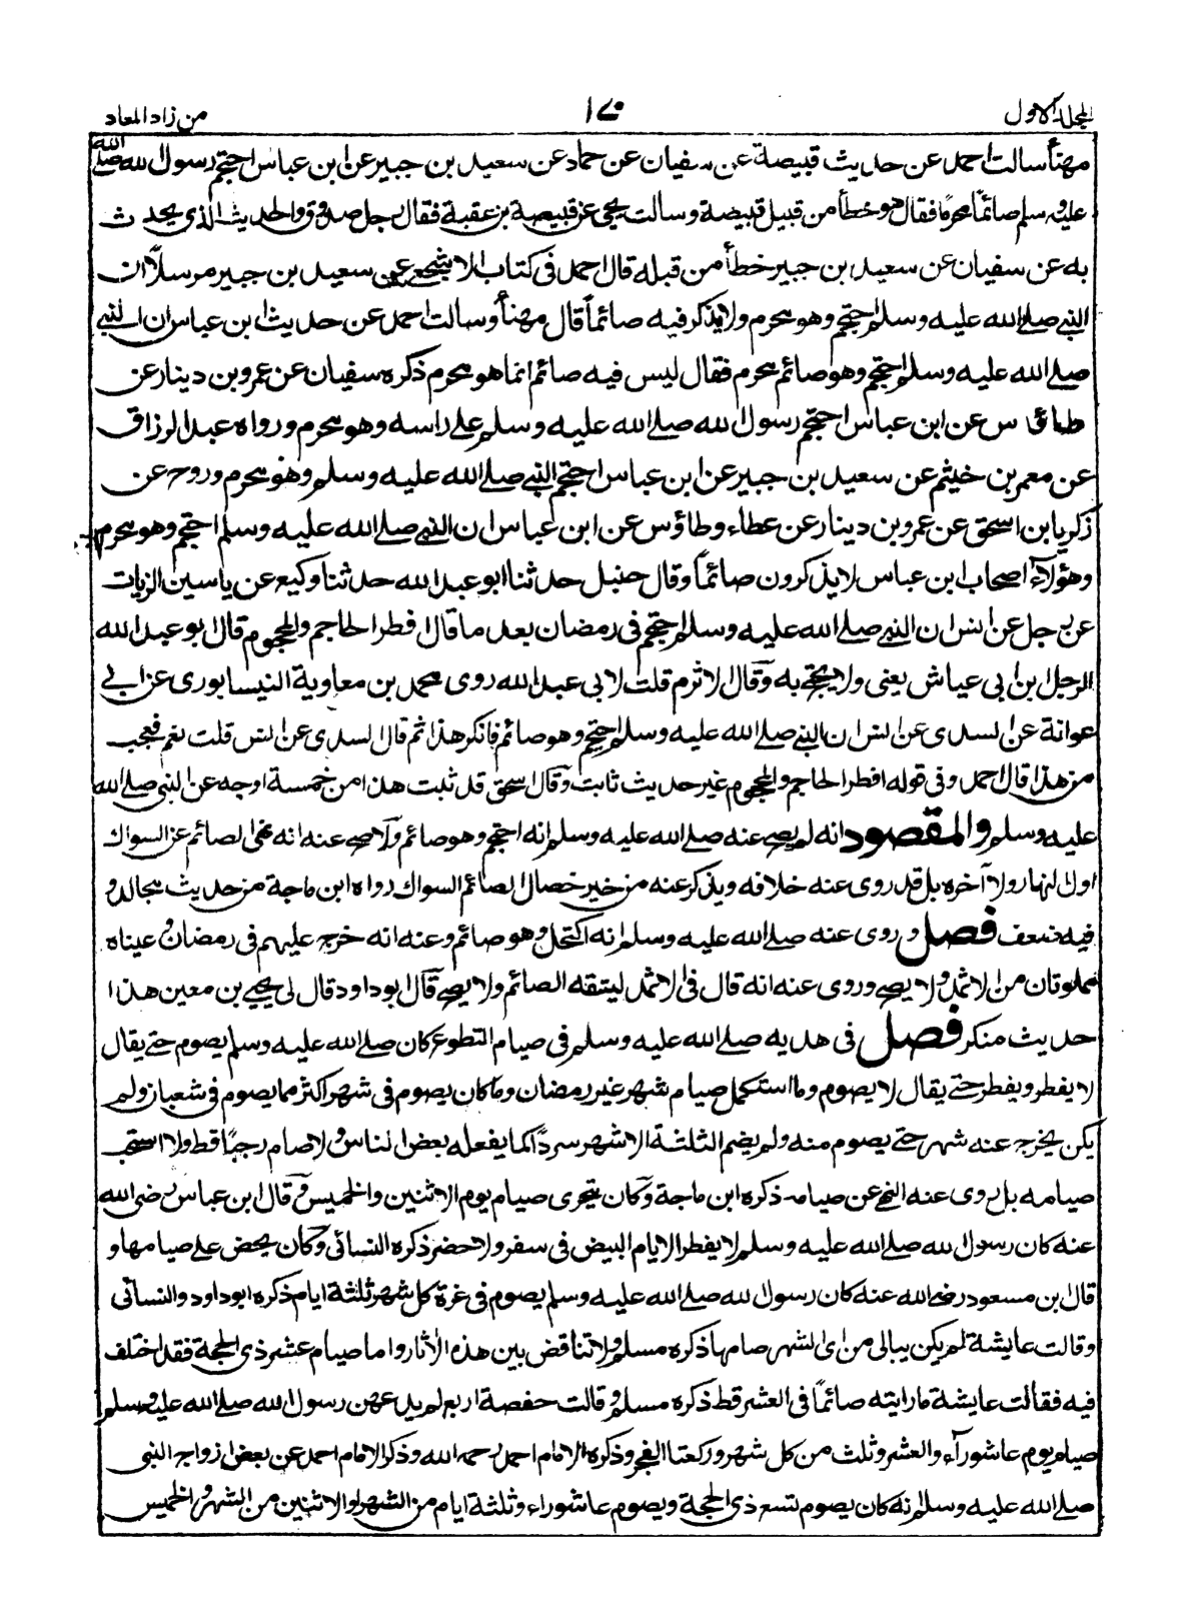 المجلد الاول
١٧٠
من زاد المعاد
مهنأ سالت احمد عن حديث قبيصة عن سفيان عن حماد عن سعيد بن جبير عن ابن عباس احتجم رسول الله صلے الله
عليه وسلم صائماً محرماً فقال هو خطأ من قبيل قبيصة وسالت يحيى عن قبيصة بن عقبة فقال رجل صدوق والحديث الذى يحدث
به عن سفيان عن سعيد بن جبير خطأ من قبله قال احمد فى كتاب الاشجعى عن سعيد بن جبير مرسلا ان
النبى صلے الله عليه وسلم احتجم وهو محرم ولا يذكر فيه صائماً قال مهنأ وسالت احمد عن حديث ابن عباس ان النبى
صلے الله عليه وسلم احتجم وهو صائم محرم فقال ليس فيه صائم انما هو محرم ذكره سفيان عن عمرو بن دينار عن
طاؤس عن ابن عباس احتجم رسول الله صلے الله عليه وسلم على راسه وهو محرم ورواه عبد الرزاق
عن معمر بن خيثم عن سعيد بن جبير عن ابن عباس احتجم النبى صلے الله عليه وسلم وهو محرم وروح عن
زكريا بن اسحق عن عمرو بن دينار عن عطاء وطاؤس عن ابن عباس ان النبى صلے الله عليه وسلم احتجم وهو محرم
وهؤلاء اصحاب ابن عباس لا يذكرون صائماً وقال حنبل حدثنا ابو عبد الله حدثنا وكيع عن ياسين الزيات
عن رجل عن انس ان النبى صلے الله عليه وسلم احتجم فى رمضان بعد ما قال افطر الحاجم والمحجوم قال ابو عبد الله
الرجل ابن ابى عياش يعنى ولا يحتج به وقال الاثرم قلت لابى عبد الله روى محمد بن معاوية النيسابورى عن ابى
عوانة عن السدى عن انس ان النبى صلے الله عليه وسلم احتجم وهو صائم فانكر هذا ثم قال السدى عن انس قلت نعم فعجب
من هذا قال احمد وفى قوله افطر الحاجم والمحجوم غير حديث ثابت وقال اسحق قد ثبت هذا من خمسة اوجه عن النبى صلے الله
عليه وسلم والمقصود انه لم يصح عنه صلے الله عليه وسلم انه احتجم وهو صائم ولا صح عنه انه نهى الصائم عن السواك
اول النهار ولا آخره بل قد روى عنه خلافه ويذكر عنه من خير خصال الصائم السواك رواه ابن ماجة من حديث مجالد و
فيه ضعف فصل وروى عنه صلے الله عليه وسلم انه اكتحل وهو صائم وعنه انه خرج عليهم فى رمضان وعيناه
مملوتان من الاثمد ولا يصح وروى عنه انه قال فى الاثمد ليتقه الصائم ولا يصح قال ابو داود قال لى يحيى بن معين هذا
حديث منكر فصل فى هديه صلے الله عليه وسلم فى صيام التطوع كان صلے الله عليه وسلم يصوم حتے يقال
لا يفطر ويفطر حتے يقال لا يصوم وما استكمل صيام شهر غير رمضان وما كان يصوم فى شهر اكثر مما يصوم فى شعبان ولم
يكن يخرج عنه شهر حتے يصوم منه ولم يضم الثلثة الاشهر سرداً كما يفعله بعض الناس ولا صام رجباً قط ولا استحب
صيامه بل روى عنه النهى عن صيامه ذكره ابن ماجة وكان يتحرى صيام يوم الاثنين والخميس وقال ابن عباس رضى الله
عنه كان رسول الله صلے الله عليه وسلم لا يفطر الايام البيض فى سفر ولا حضر ذكره النسائى وكان يحض على صيامها و
قال ابن مسعود رضى الله عنه كان رسول الله صلے الله عليه وسلم يصوم فى غرة كل شهر ثلثة ايام ذكره ابو داود والنسائى
وقالت عايشة لم يكن يبالى من اى الشهر صامها ذكره مسلم ولا تناقض بين هذه الآثار واما صيام عشر ذى الحجة فقد اختلف
فيه فقالت عايشة ما رايته صائماً فى العشر قط ذكره مسلم وقالت حفصة اربع لم يدعهن رسول الله صلے الله عليه وسلم
صيام يوم عاشوراء والعشر وثلث من كل شهر وركعتا الفجر وذكره الامام احمد رحمه الله وذكر الامام احمد عن بعض ازواج النبى
صلے الله عليه وسلم انه كان يصوم تسع ذى الحجة ويصوم عاشوراء وثلثة ايام من الشهر او الاثنين من الشهر والخميس